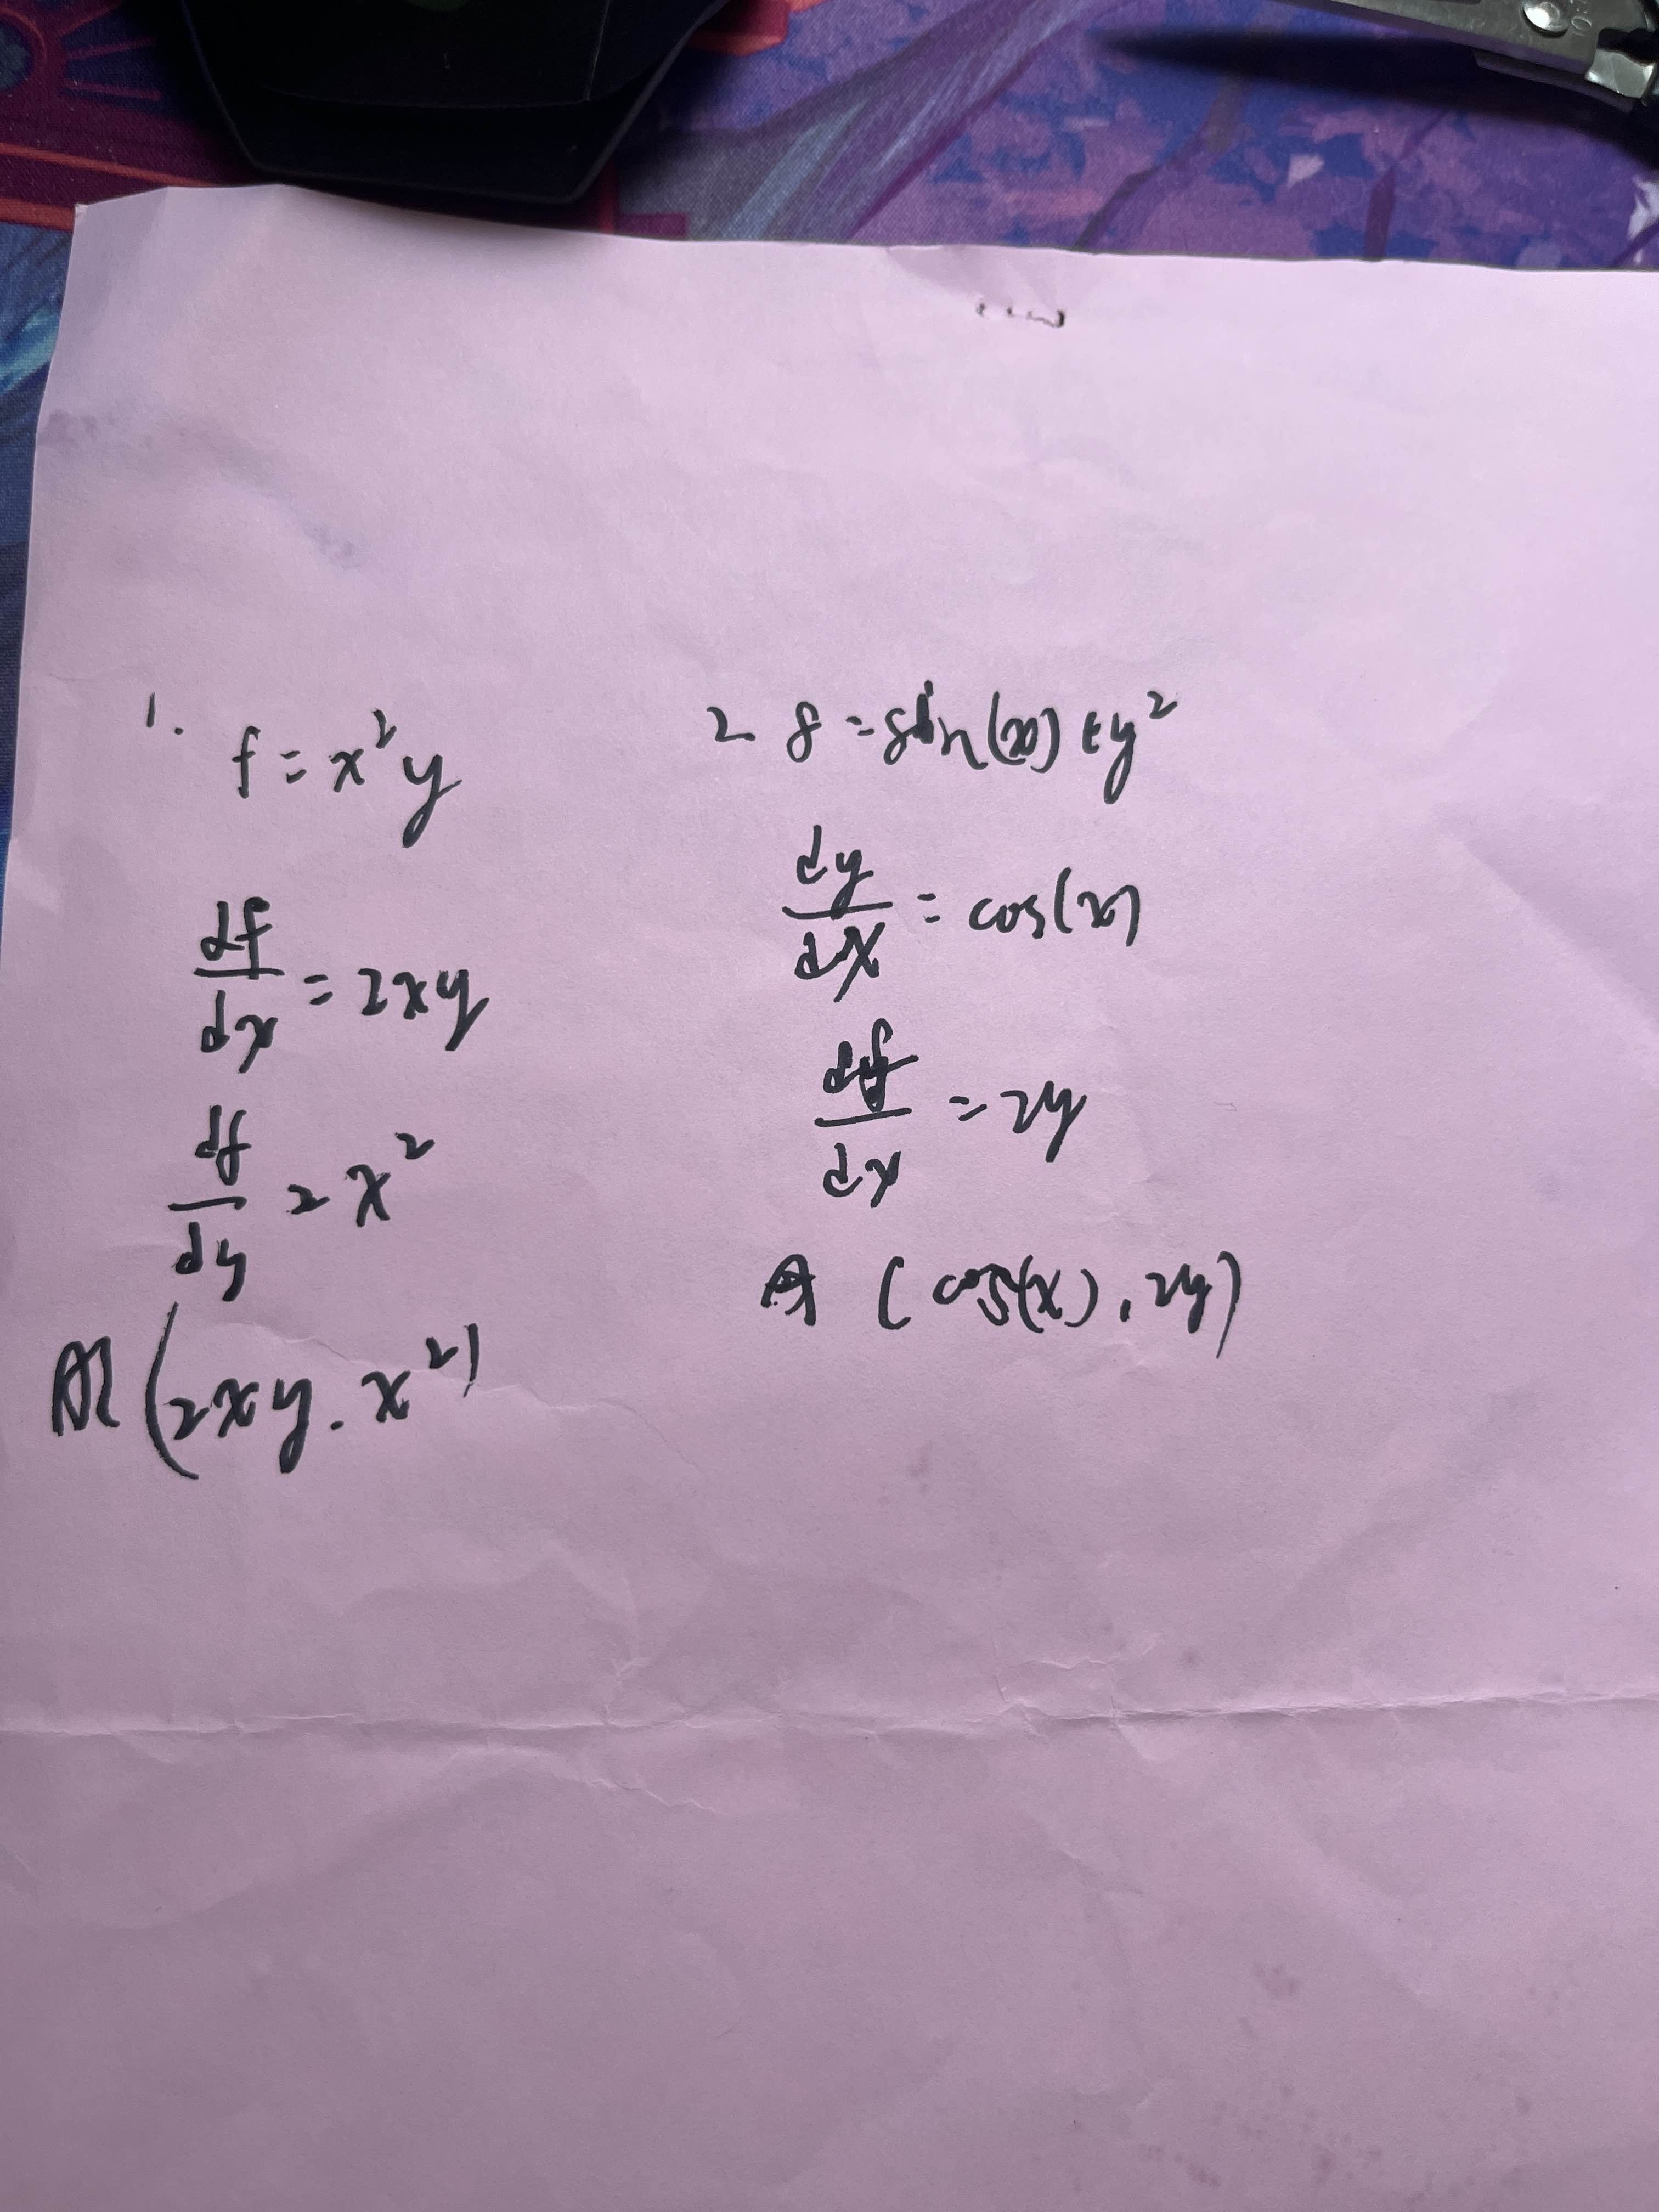 1.
f = x²y
df/dx = 2xy
df/dy = x²
(2xy, x²)
2 f = sin(x) + y²
dy/dx = cos(x)
df/dx = 2y
A (cos(x), 2y)